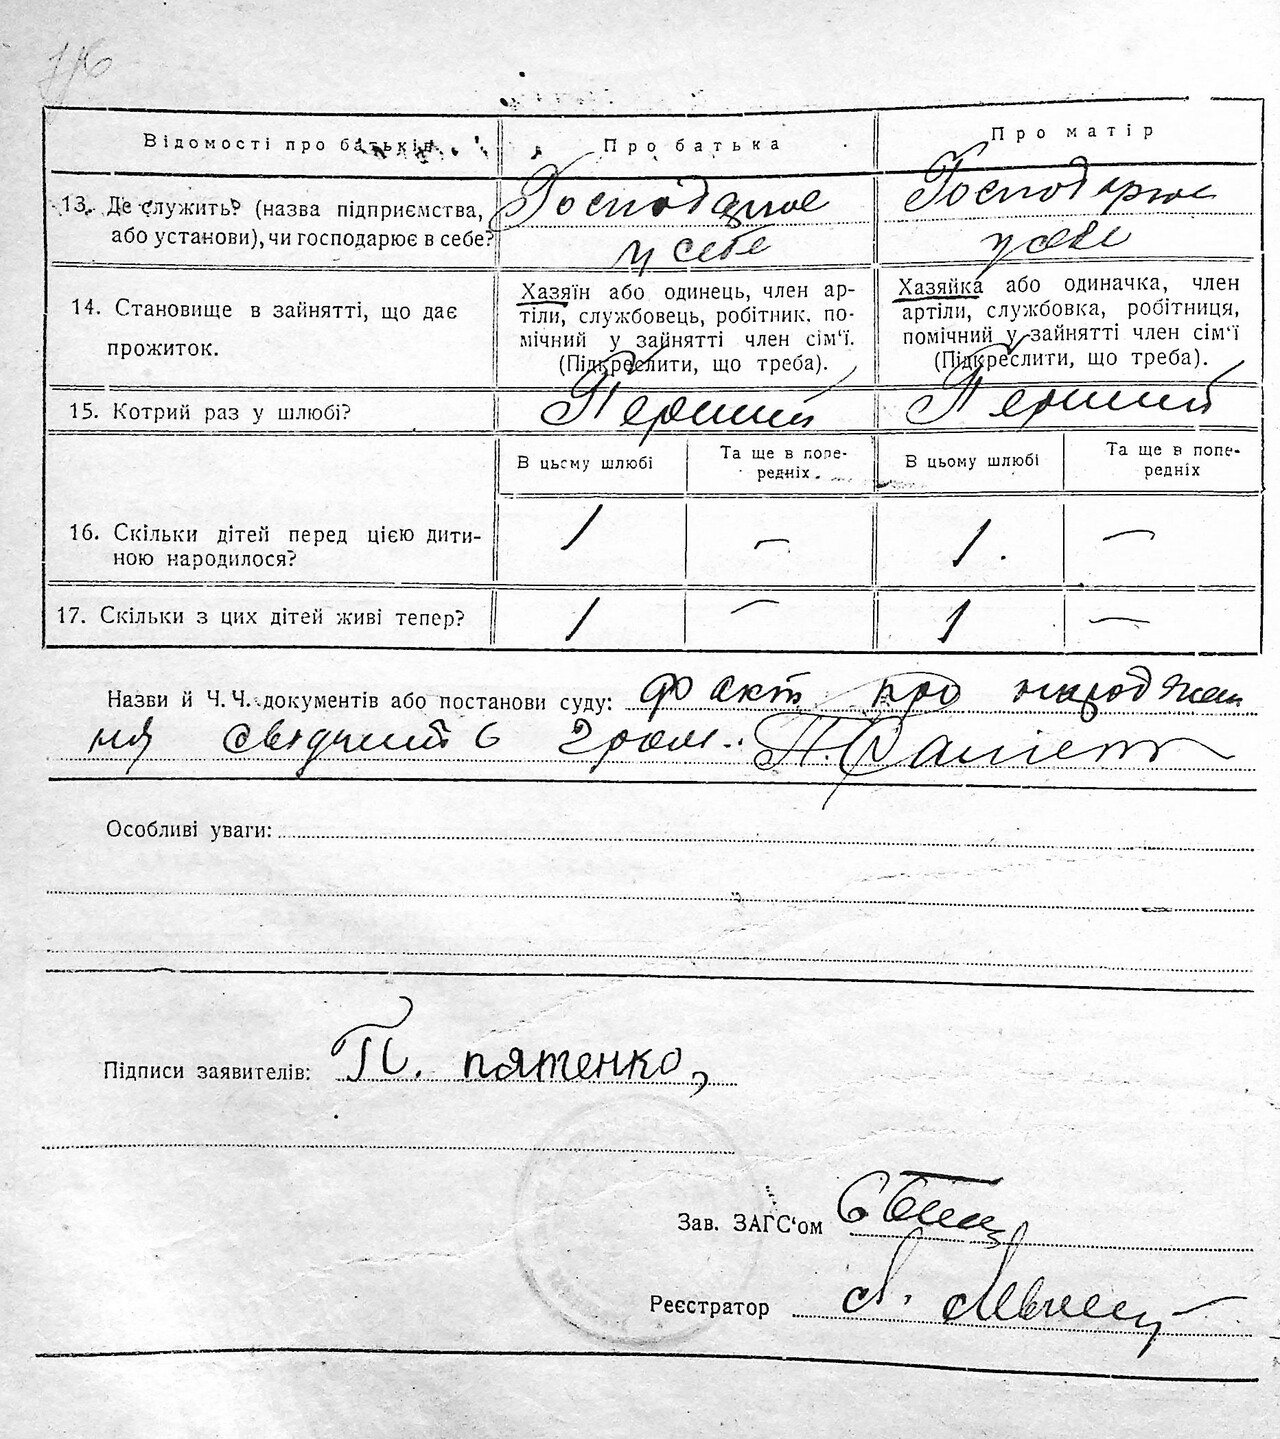 Відомості про батьків Про батька Про матір
13. Де служить? (назва підприємства, або установи), чи господарює в себе?
Господарює
у себе
Господарює
у себе
14. Становище в зайнятті, що дає
прожиток.
Хазяїн або одинець, член ар-
тіли, службовець, робітник, по-
мічний у зайнятті член сім'ї.
(Підкреслити, що треба).
Хазяйка або одиначка, член
артіли, службовка, робітниця,
помічний у зайнятті член сім'ї
(Підкреслити, що треба).
15. Котрий раз у шлюбі? Перший Перший
В цьому шлюбі Та ще в попе-
редніх.
В цьому шлюбі Та ще в попе-
редніх
16. Скільки дітей перед цією дити-
ною народилося?
1 — 1. —
17. Скільки з цих дітей живі тепер? 1 — 1 —
Назви й Ч. Ч. документів або постанови суду: факт про народжен
ня свідчит гром. П.
Особливі уваги:
Підписи заявителів: П. пятенко,
Зав. ЗАГС'ом
Реєстратор